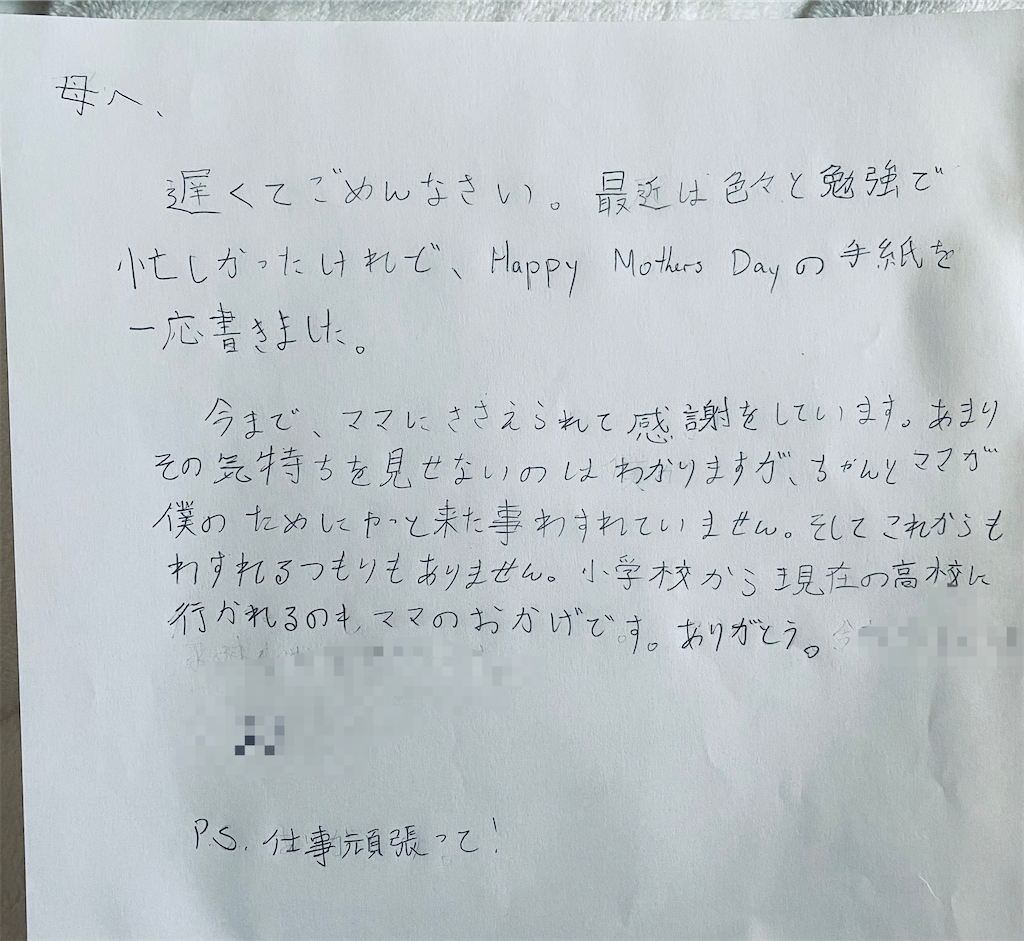 母へ、
遅くてごめんなさい。最近は色々と勉強で
忙しかったけれど、Happy Mothers Dayの手紙を
一応書きました。
今まで、ママにささえられて感謝をしています。あまり
その気持ちを見せないのはわかりますが、ちゃんとママが
僕のためにやっと来た事わすれていません。そしてこれからも
わすれるつもりもありません。小学校から現在の高校に
行かれるのも、ママのおかげです。ありがとう。
P.S. 仕事頑張って!